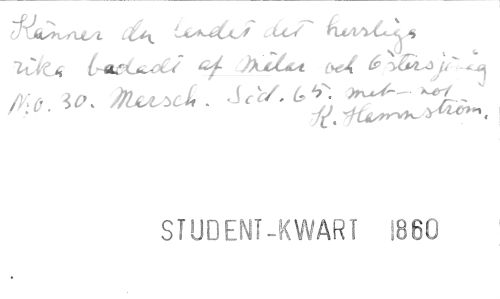 Känner du landet det herrliga
rika badadt af Mälar och Östersjövåg
No. 30. Marsch. Sid. 65. met-not
K. Hammström.
STUDENT-KWART 1860